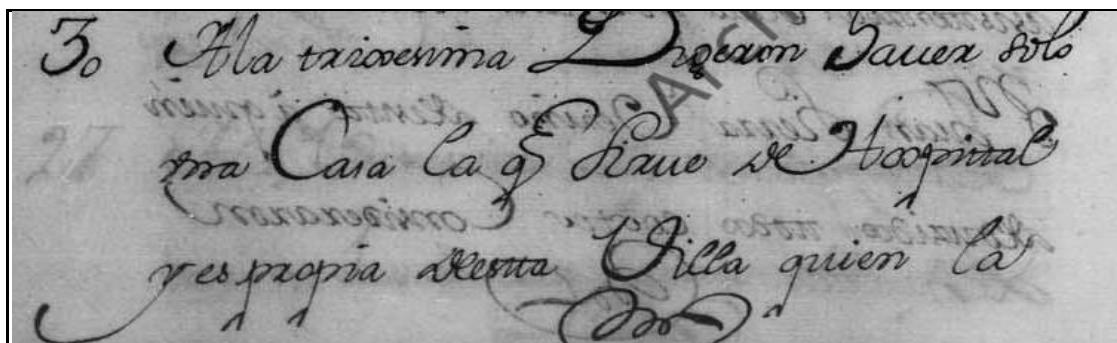 30 A la trixesima Dixeron Sauer solo
una Casa la q̃ Sirue de Hospital
y es propia de esta Villa quien la